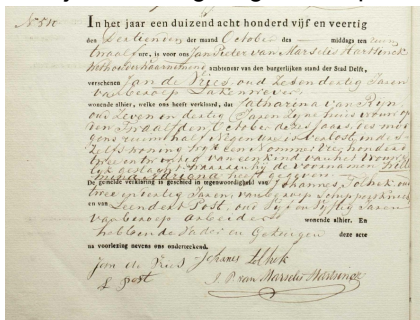 No 510
In het jaar een duizend acht honderd vijf en veertig
den Dertienden der maand October des middags ten
twaalf ure, is voor ons Jan Pieter van Marselis Hartsinck
Wethouder ambtenaar van den burgerlijken stand der Stad Delft,
verschenen Jan de Vries, oud Zes en dertig Jaren
van beroep
wonende alhier, welke ons heeft verklaard, dat Catharina van Ryn
oud Zeven en dertig Jaren Zyne huisvrouw op
den Twaalfden October dezes Jaars, des
Zyk een Nommer Vierhonderd
drie en twintig van een kind van het
lyk geslacht, de voornamen
mina Adriana heeft gegeven
De gemelde verklaring is geschied in tegenwoordigheid van Johannes Tolhek, oud
drie en Jaren, van beroep
en van Leendert Post, oud en vyftig Jaren
van beroep arbeider wonende alhier. En
hebben de Vader en Getuigen deze acte
na voorlezing nevens ons onderteekend.
Jan de Vries Johanes Tolhek
L Post J. P. van Marselis Hartsinck